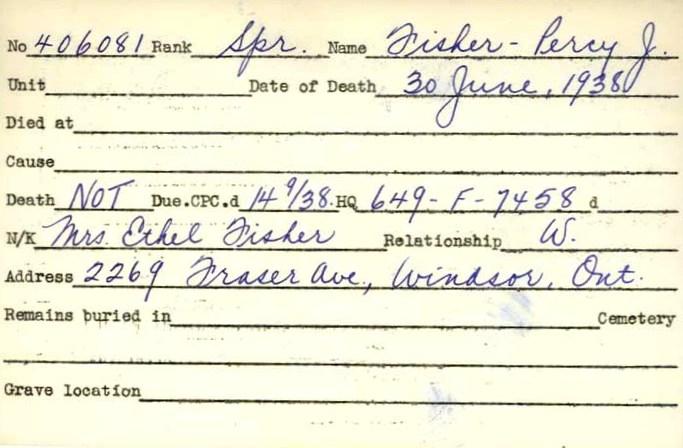 No 406081 Rank Spr. Name Fisher - Percy J.
Unit Date of Death 30 June, 1938
Died at
Cause
Death NOT Due.CPC.d 14 9/38. HQ 649-F-7458 d
N/K Mrs. Ethel Fisher Relationship W.
Address 2269 Fraser Ave., Windsor, Ont.
Remains buried in Cemetery
Grave location